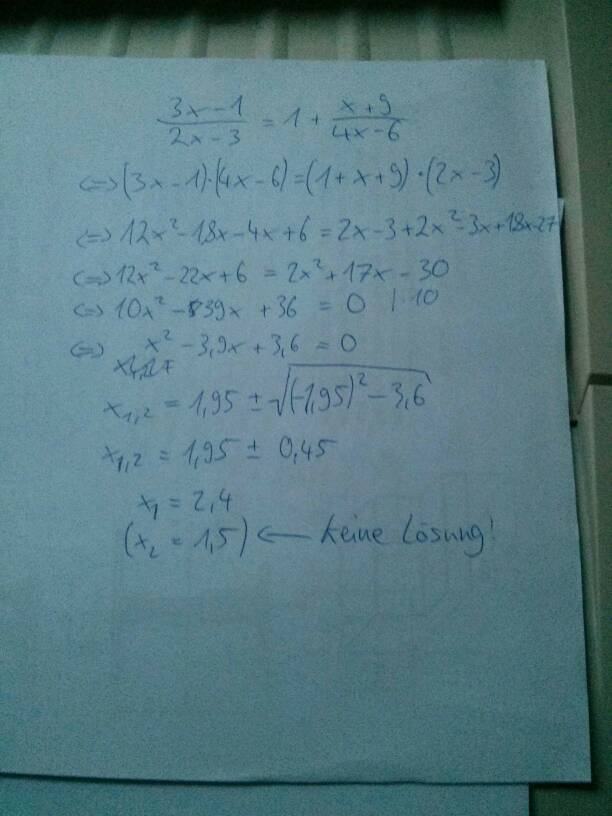 (3x-1)/(2x-3) = 1 + (x+9)/(4x-6)
<=> (3x-1)·(4x-6)=(1+x+9)·(2x-3)
<=> 12x²-18x-4x+6 = 2x-3+2x²-3x+18x-27
<=> 12x²-22x+6 = 2x²+17x-30
<=> 10x²-39x+36 = 0 | :10
<=> x²-3,9x+3,6 = 0
x1,2 = 1,95 ± √((-1,95)²-3,6)
x1,2 = 1,95 ± 0,45
x1 = 2,4
(x2 = 1,5) <— keine Lösung!